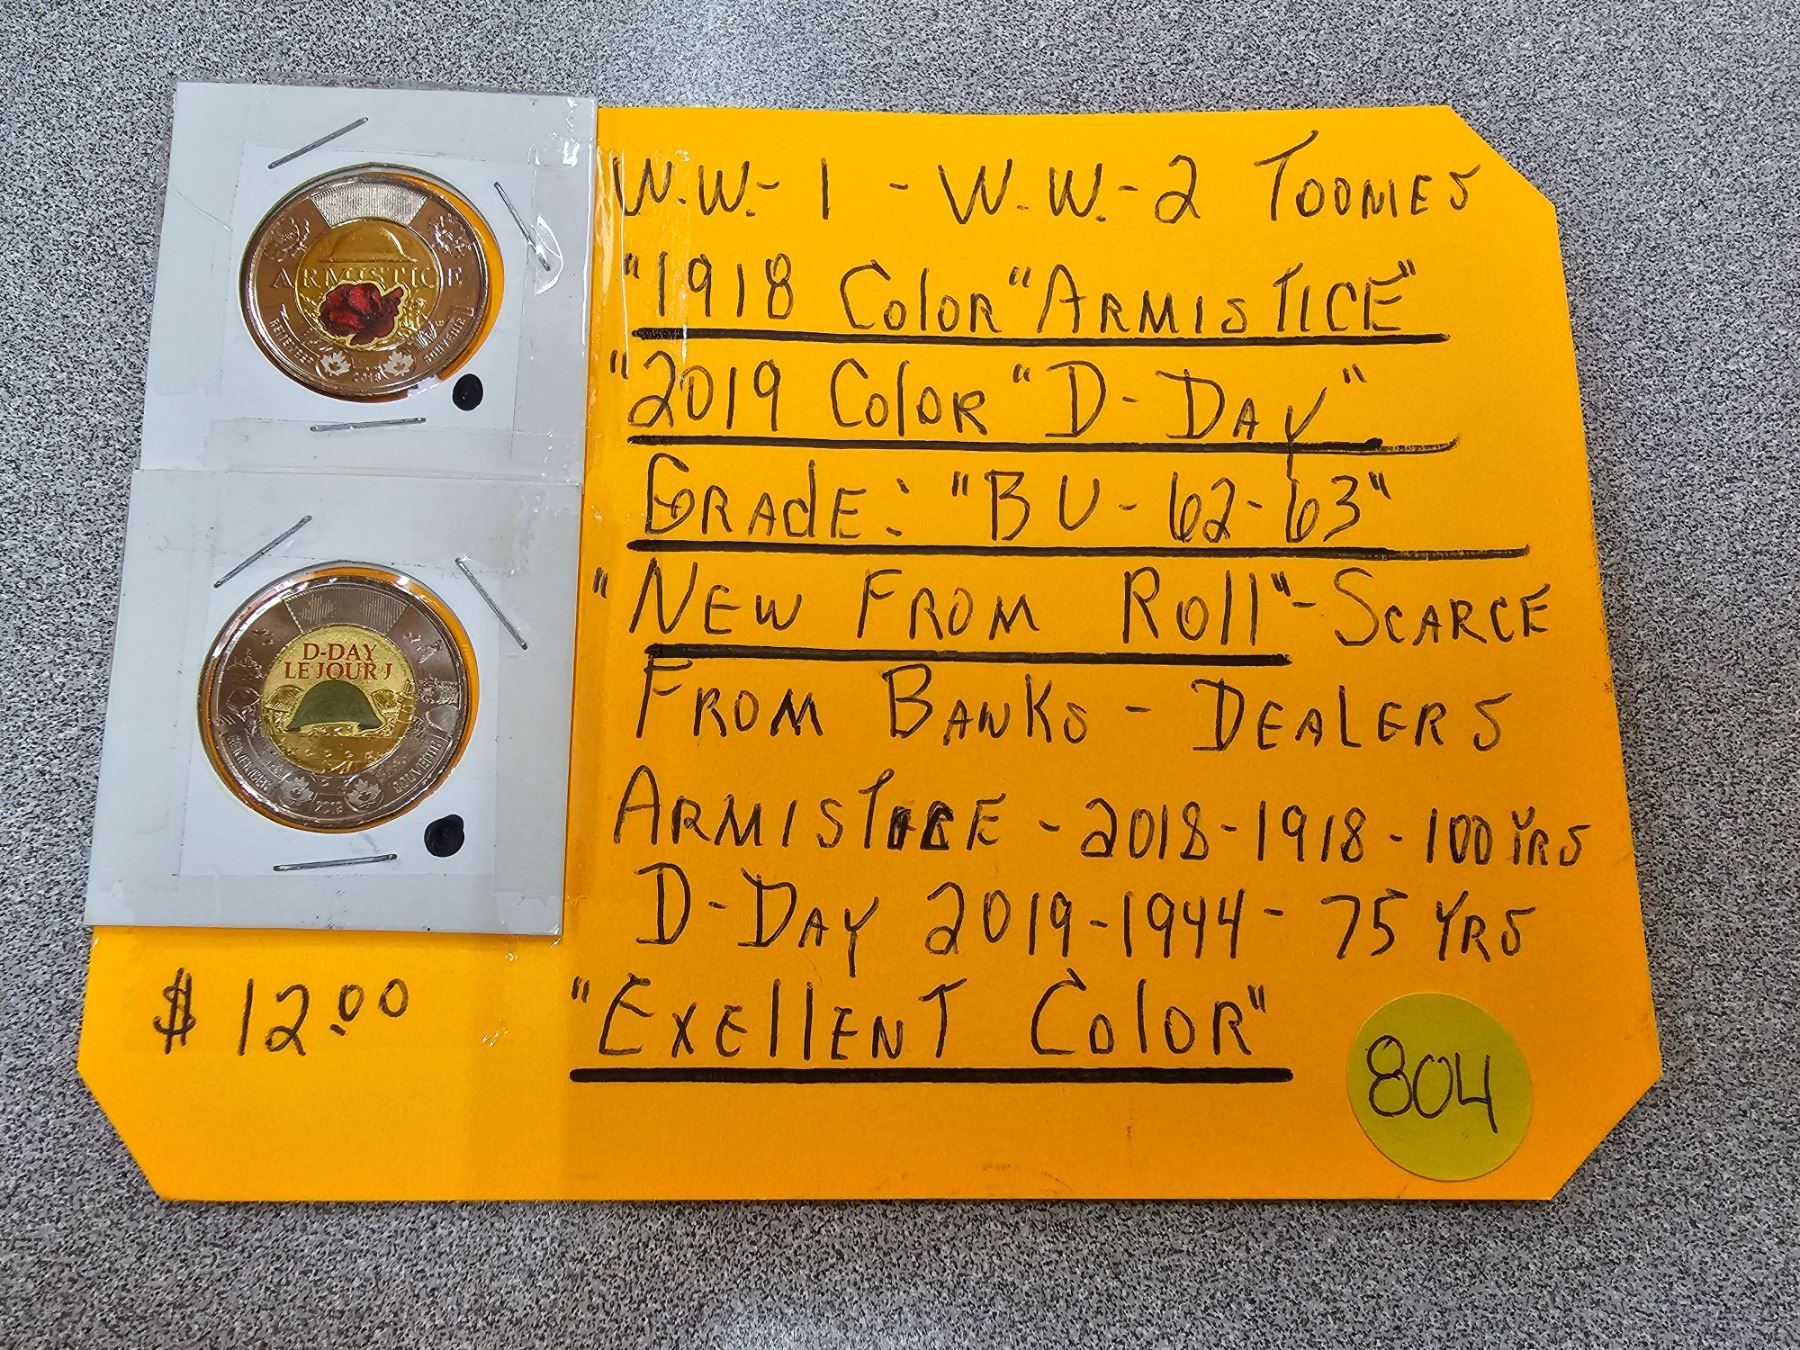 ARMISTICE
REMEMBER
SOUVENIR
2018
D-DAY
LE JOUR J
REMEMBER
SOUVENIR
2019
$ 12.00
W.W.-1 - W.W.-2 TOONIES
"1918 COlOR "ARMISTICE"
"2019 COlOR "D-DAY"
GRAdE: "BU-62-63"
"NEW FROM ROll"-SCARCE
FROM BANKS - DEALERS
ARMISTICE - 2018-1918-100 YRS
D-DAY 2019-1944- 75 YRS
"EXEllENT COlOR"
804